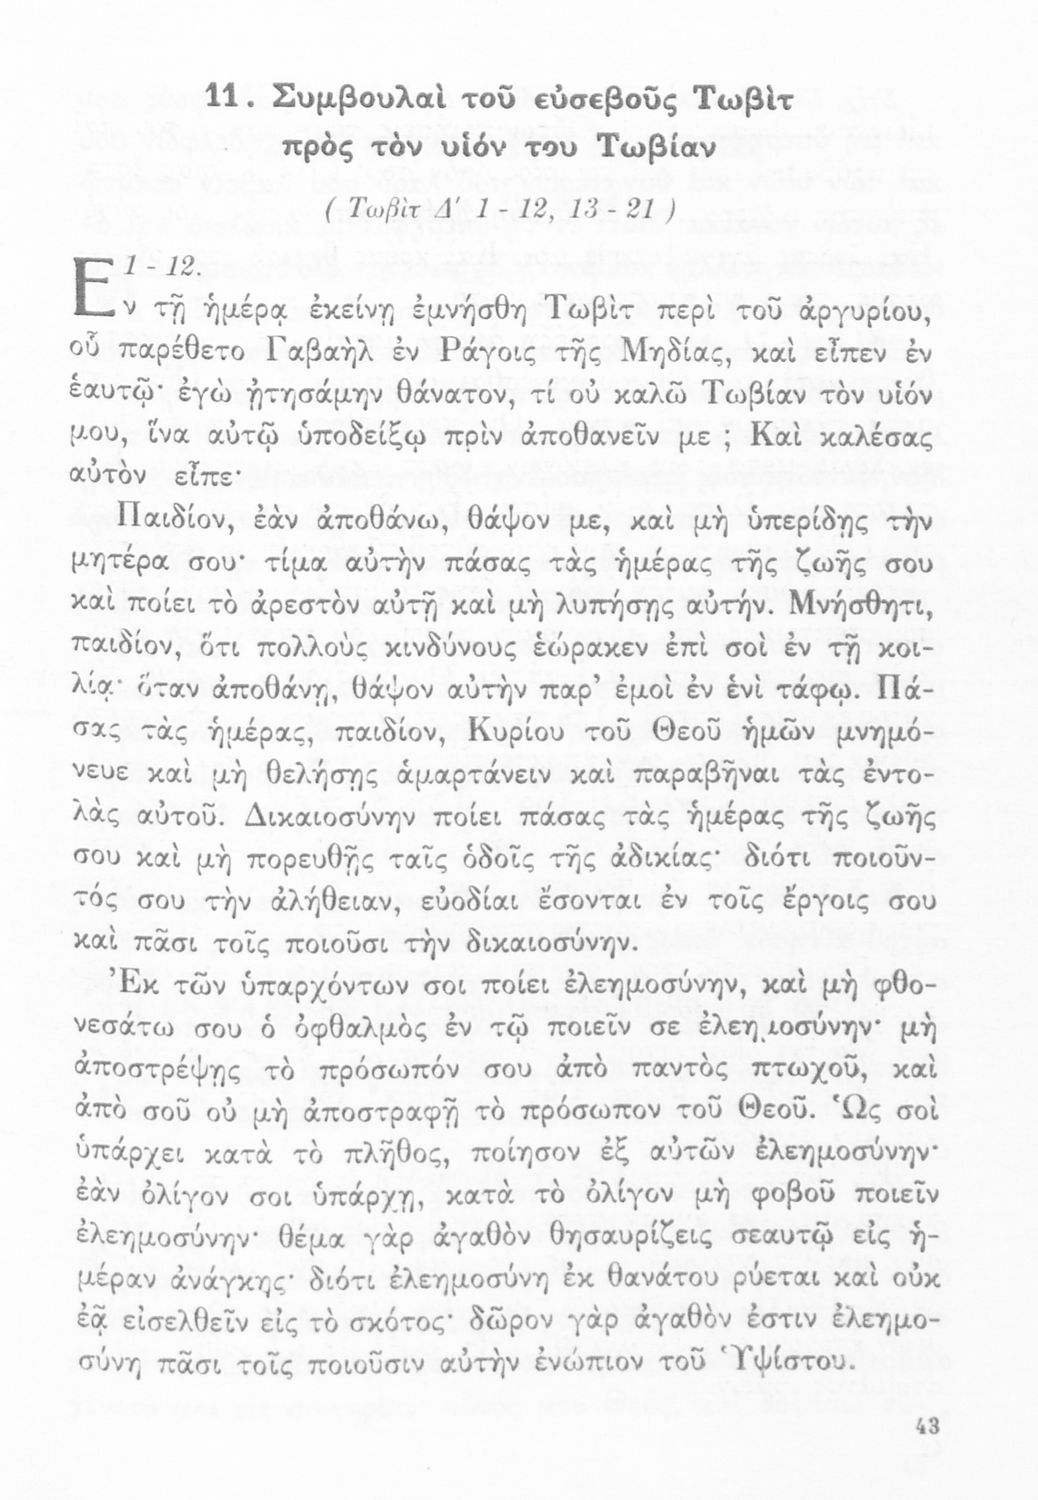 11. Συμβουλαὶ τοῦ εὐσεβοῦς Τωβὶτ
πρὸς τὸν υἱόν του Τωβίαν
( Τωβὶτ Δ' 1 - 12, 13 - 21 )
1 - 12.
Εν τῇ ἡμέρᾳ ἐκείνῃ ἐμνήσθη Τωβὶτ περὶ τοῦ ἀργυρίου,
οὗ παρέθετο Γαβαὴλ ἐν Ράγοις τῆς Μηδίας, καὶ εἶπεν ἐν
ἑαυτῷ· ἐγὼ ᾐτησάμην θάνατον, τί οὐ καλῶ Τωβίαν τὸν υἱόν
μου, ἵνα αὐτῷ ὑποδείξω πρὶν ἀποθανεῖν με ; Καὶ καλέσας
αὐτὸν εἶπε·
Παιδίον, ἐὰν ἀποθάνω, θάψον με, καὶ μὴ ὑπερίδῃς τὴν
μητέρα σου· τίμα αὐτὴν πάσας τὰς ἡμέρας τῆς ζωῆς σου
καὶ ποίει τὸ ἀρεστὸν αὐτῇ καὶ μὴ λυπήσῃς αὐτήν. Μνήσθητι,
παιδίον, ὅτι πολλοὺς κινδύνους ἑώρακεν ἐπὶ σοὶ ἐν τῇ κοι-
λίᾳ· ὅταν ἀποθάνῃ, θάψον αὐτὴν παρ' ἐμοὶ ἐν ἑνὶ τάφῳ. Πά-
σας τὰς ἡμέρας, παιδίον, Κυρίου τοῦ Θεοῦ ἡμῶν μνημό-
νευε καὶ μὴ θελήσῃς ἁμαρτάνειν καὶ παραβῆναι τὰς ἐντο-
λὰς αὐτοῦ. Δικαιοσύνην ποίει πάσας τὰς ἡμέρας τῆς ζωῆς
σου καὶ μὴ πορευθῇς ταῖς ὁδοῖς τῆς ἀδικίας· διότι ποιοῦν-
τός σου τὴν ἀλήθειαν, εὐοδίαι ἔσονται ἐν τοῖς ἔργοις σου
καὶ πᾶσι τοῖς ποιοῦσι τὴν δικαιοσύνην.
Ἐκ τῶν ὑπαρχόντων σοι ποίει ἐλεημοσύνην, καὶ μὴ φθο-
νεσάτω σου ὁ ὀφθαλμὸς ἐν τῷ ποιεῖν σε ἐλεημοσύνην· μὴ
ἀποστρέψῃς τὸ πρόσωπόν σου ἀπὸ παντὸς πτωχοῦ, καὶ
ἀπὸ σοῦ οὐ μὴ ἀποστραφῇ τὸ πρόσωπον τοῦ Θεοῦ. Ὡς σοὶ
ὑπάρχει κατὰ τὸ πλῆθος, ποίησον ἐξ αὐτῶν ἐλεημοσύνην·
ἐὰν ὀλίγον σοι ὑπάρχῃ, κατὰ τὸ ὀλίγον μὴ φοβοῦ ποιεῖν
ἐλεημοσύνην· θέμα γὰρ ἀγαθὸν θησαυρίζεις σεαυτῷ εἰς ἡ-
μέραν ἀνάγκης· διότι ἐλεημοσύνη ἐκ θανάτου ρύεται καὶ οὐκ
ἐᾷ εἰσελθεῖν εἰς τὸ σκότος· δῶρον γὰρ ἀγαθὸν ἐστιν ἐλεημο-
σύνη πᾶσι τοῖς ποιοῦσιν αὐτὴν ἐνώπιον τοῦ Ὑψίστου.
43